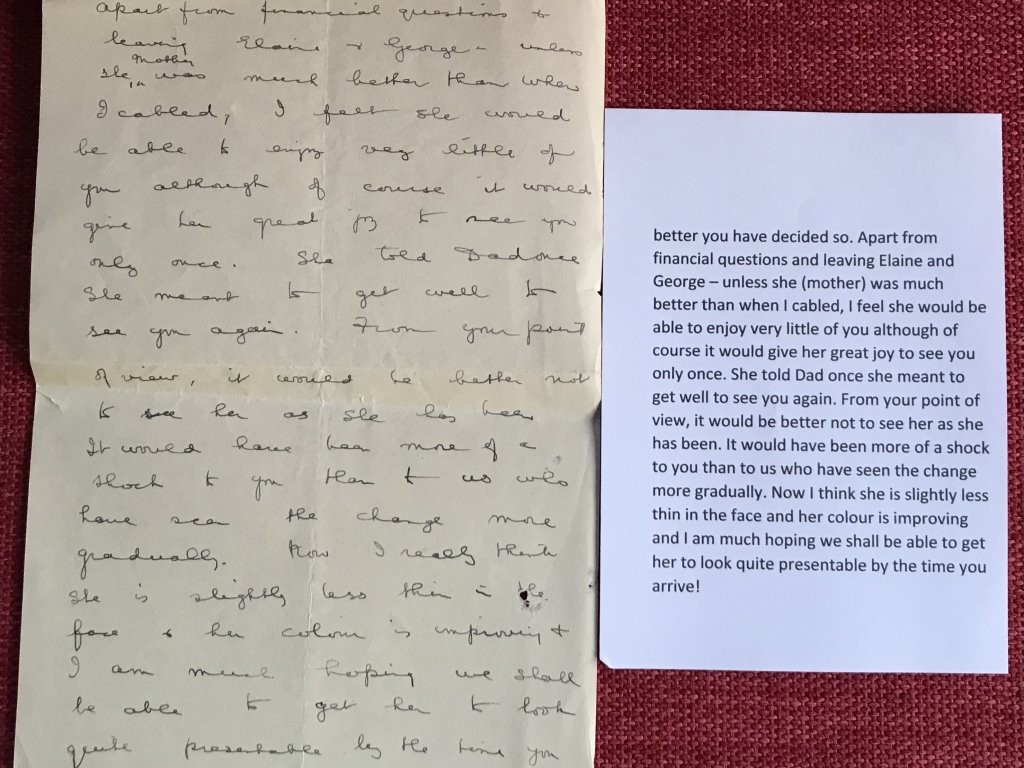 apart from financial questions &
leaving Elaine & George – unless
Mother
she was much better than when
I cabled, I felt she would
be able to enjoy very little of
you although of course it would
give her great joy to see you
only once. She told Dad once
she meant to get well to
see you again. From your point
of view, it would be better not
to see her as she has been
It would have been more of a
shock to you than to us who
have seen the change more
gradually. Now I really think
she is slightly less thin in the
face & her colour is improving &
I am much hoping we shall
be able to get her to look
quite presentable by the time you
better you have decided so. Apart from
financial questions and leaving Elaine and
George – unless she (mother) was much
better than when I cabled, I feel she would be
able to enjoy very little of you although of
course it would give her great joy to see you
only once. She told Dad once she meant to
get well to see you again. From your point of
view, it would be better not to see her as she
has been. It would have been more of a shock
to you than to us who have seen the change
more gradually. Now I think she is slightly less
thin in the face and her colour is improving
and I am much hoping we shall be able to get
her to look quite presentable by the time you
arrive!